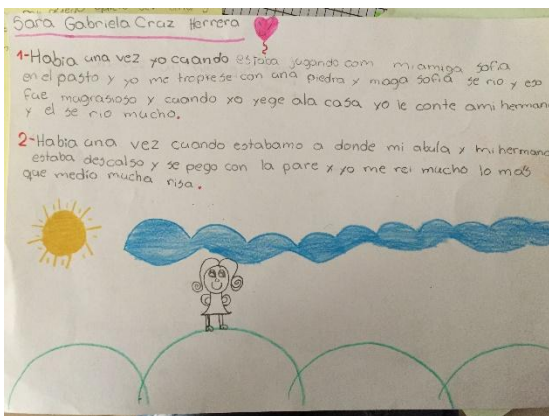 Sara Gabriela Cruz Herrera
1-Habia una vez yo cuando estaba jugando com miamiga sofia
en el pasto y yo me troprese con una piedra y maga sofia se rio y eso
fue mugrasioso y cuando yo yege ala casa yo le conte ami hermano
y el se rio mucho.
2-Habia una vez cuando estabamo a donde mi abula y mi hermano
estaba descalso y se pego con la pare x yo me rei mucho lo mas
que medio mucha risa.